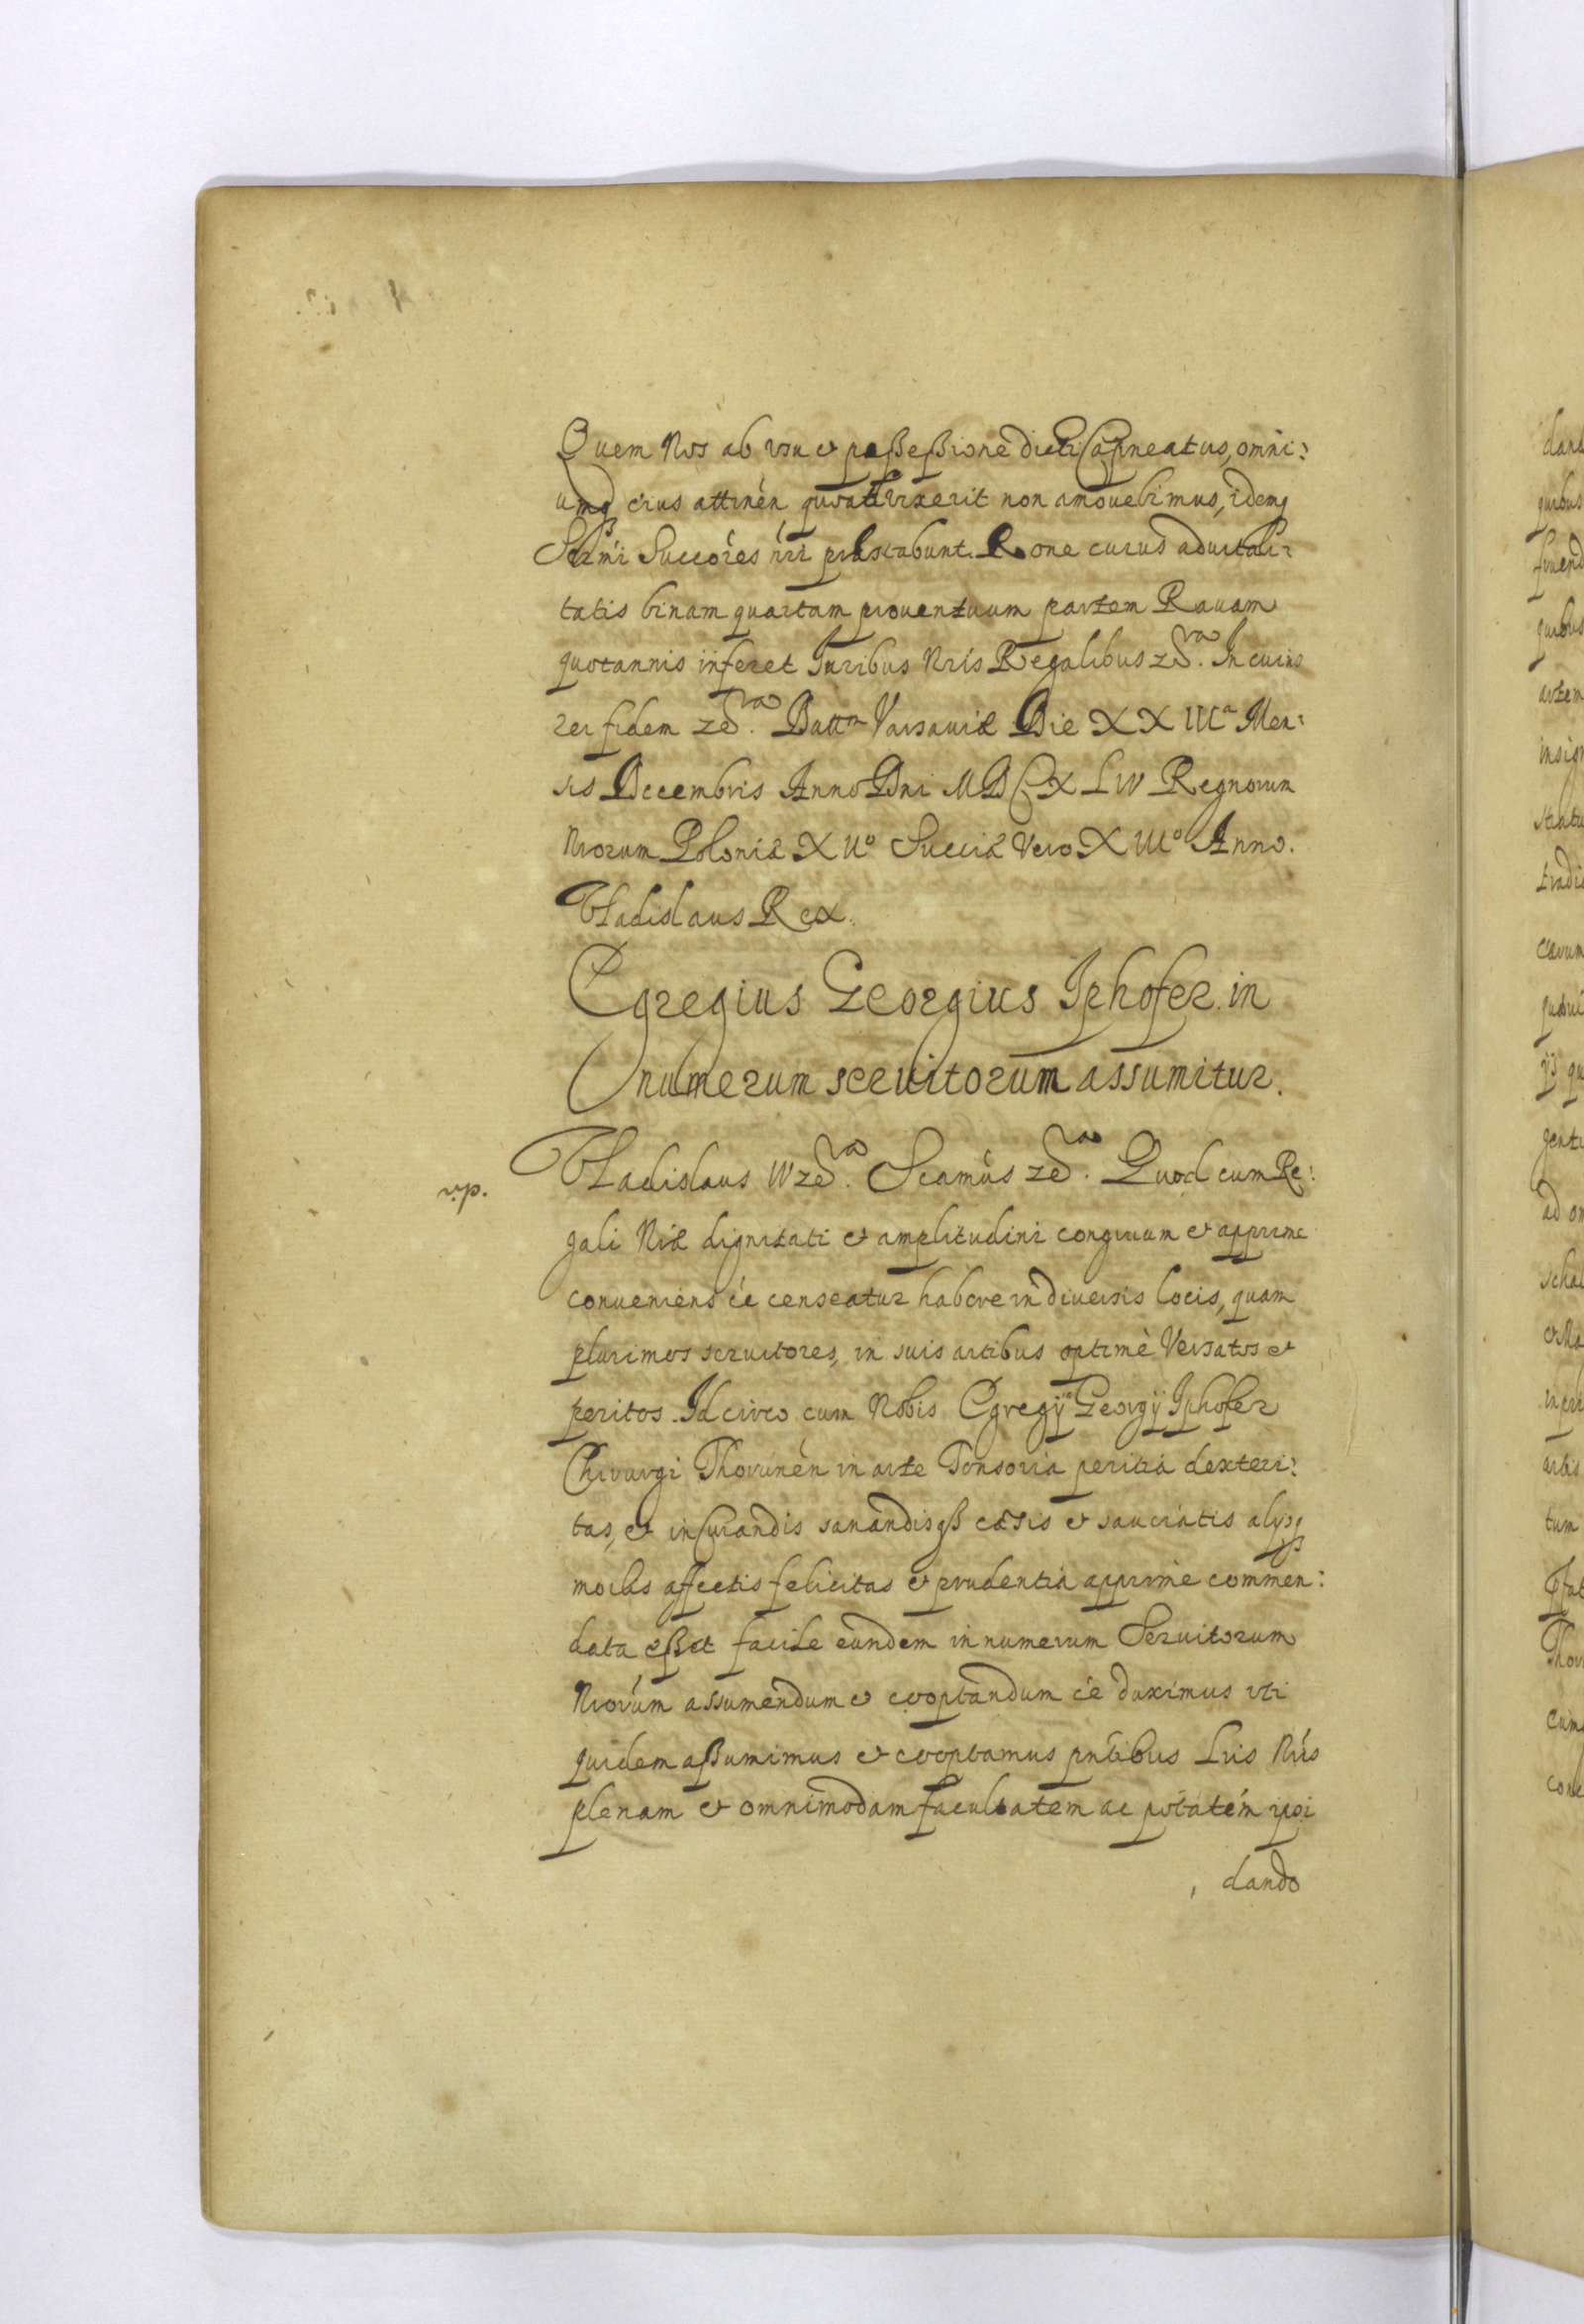 Quem Nos ab usu et possessione dicti Capneatus, omni:
umq eius attinen quoad vixerit non amovebimus, idemq
Sermi Succores nri præstabunt. Rone cuius advitali:
tatis binam quartam proventuum partem Ravam
quotannis inferet Iuribus Nris Regalibus zdra. In cuius
rei fidem zedra. Dattm Varsaviæ Die XXIIIa Men:
sis Decembris Anno Dni MDCXLIV Regnorum
Nrorum Poloniæ XIIo Sueciæ Vero XIIIo Anno.
Vladislaus Rex.
Egregius Georgius Iphofer in
numerum servitorum assumitur.
Vladislaus IV zedra. Scamus zedra. Quod cum Re:
gali Nræ dignitati et amplitudini congruum et apprime
conveniens ee censeatur habere in diversis locis, quam
plurimos servitores, in suis artibus optimè Versatos et
peritos. Idcirco cum Nobis Egregij Georgij Iphofer
Chirurgi Thorunen in arte Tonsoria peritia dexteri:
tas, et in Curandis sanandisqß cæsis et sauciatis alijsq
morbis affectis felicitas et prudentia apprime commen:
data esset facile eundem in numerum Servitorum
Nrorum assumendum et cooptandum ee duximus uti
quidem assumimus et cooptamus pntibus Lris Nris
plenam et omnimodam facultatem ac potatem ipsi
dando